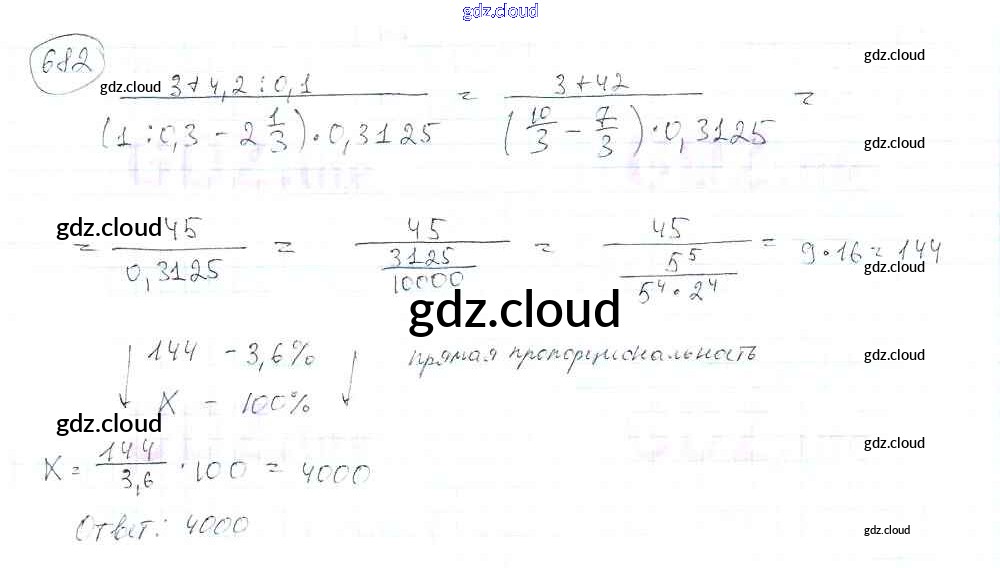 gdz.cloud
682
gdz.cloud
gdz.cloud
(3 + 4,2 : 0,1) / ((1 : 0,3 - 2 1/3) · 0,3125) = (3 + 42) / ((10/3 - 7/3) · 0,3125) =
gdz.cloud
gdz.cloud
= 45 / 0,3125 = 45 / (3125/10000) = 45 / (5^5 / (5^4 · 2^4)) = 9 · 16 = 144
gdz.cloud
gdz.cloud
↓ 144 - 3,6% ↓ прямая пропорциональность
gdz.cloud
X - 100%
gdz.cloud
gdz.cloud
X = 144/3,6 · 100 = 4000
Ответ: 4000
gdz.cloud